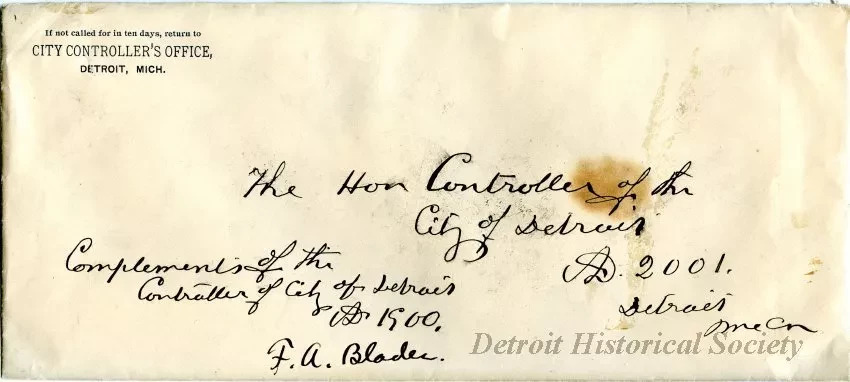 If not called for in ten days, return to
CITY CONTROLLER'S OFFICE,
DETROIT, MICH.
The Hon Controller of the
City of Detroit
AD. 2001.
Detroit
Mich
Complements of the
Controller of City of Detroit
AD 1900.
F. A. Blades.
Detroit Historical Society